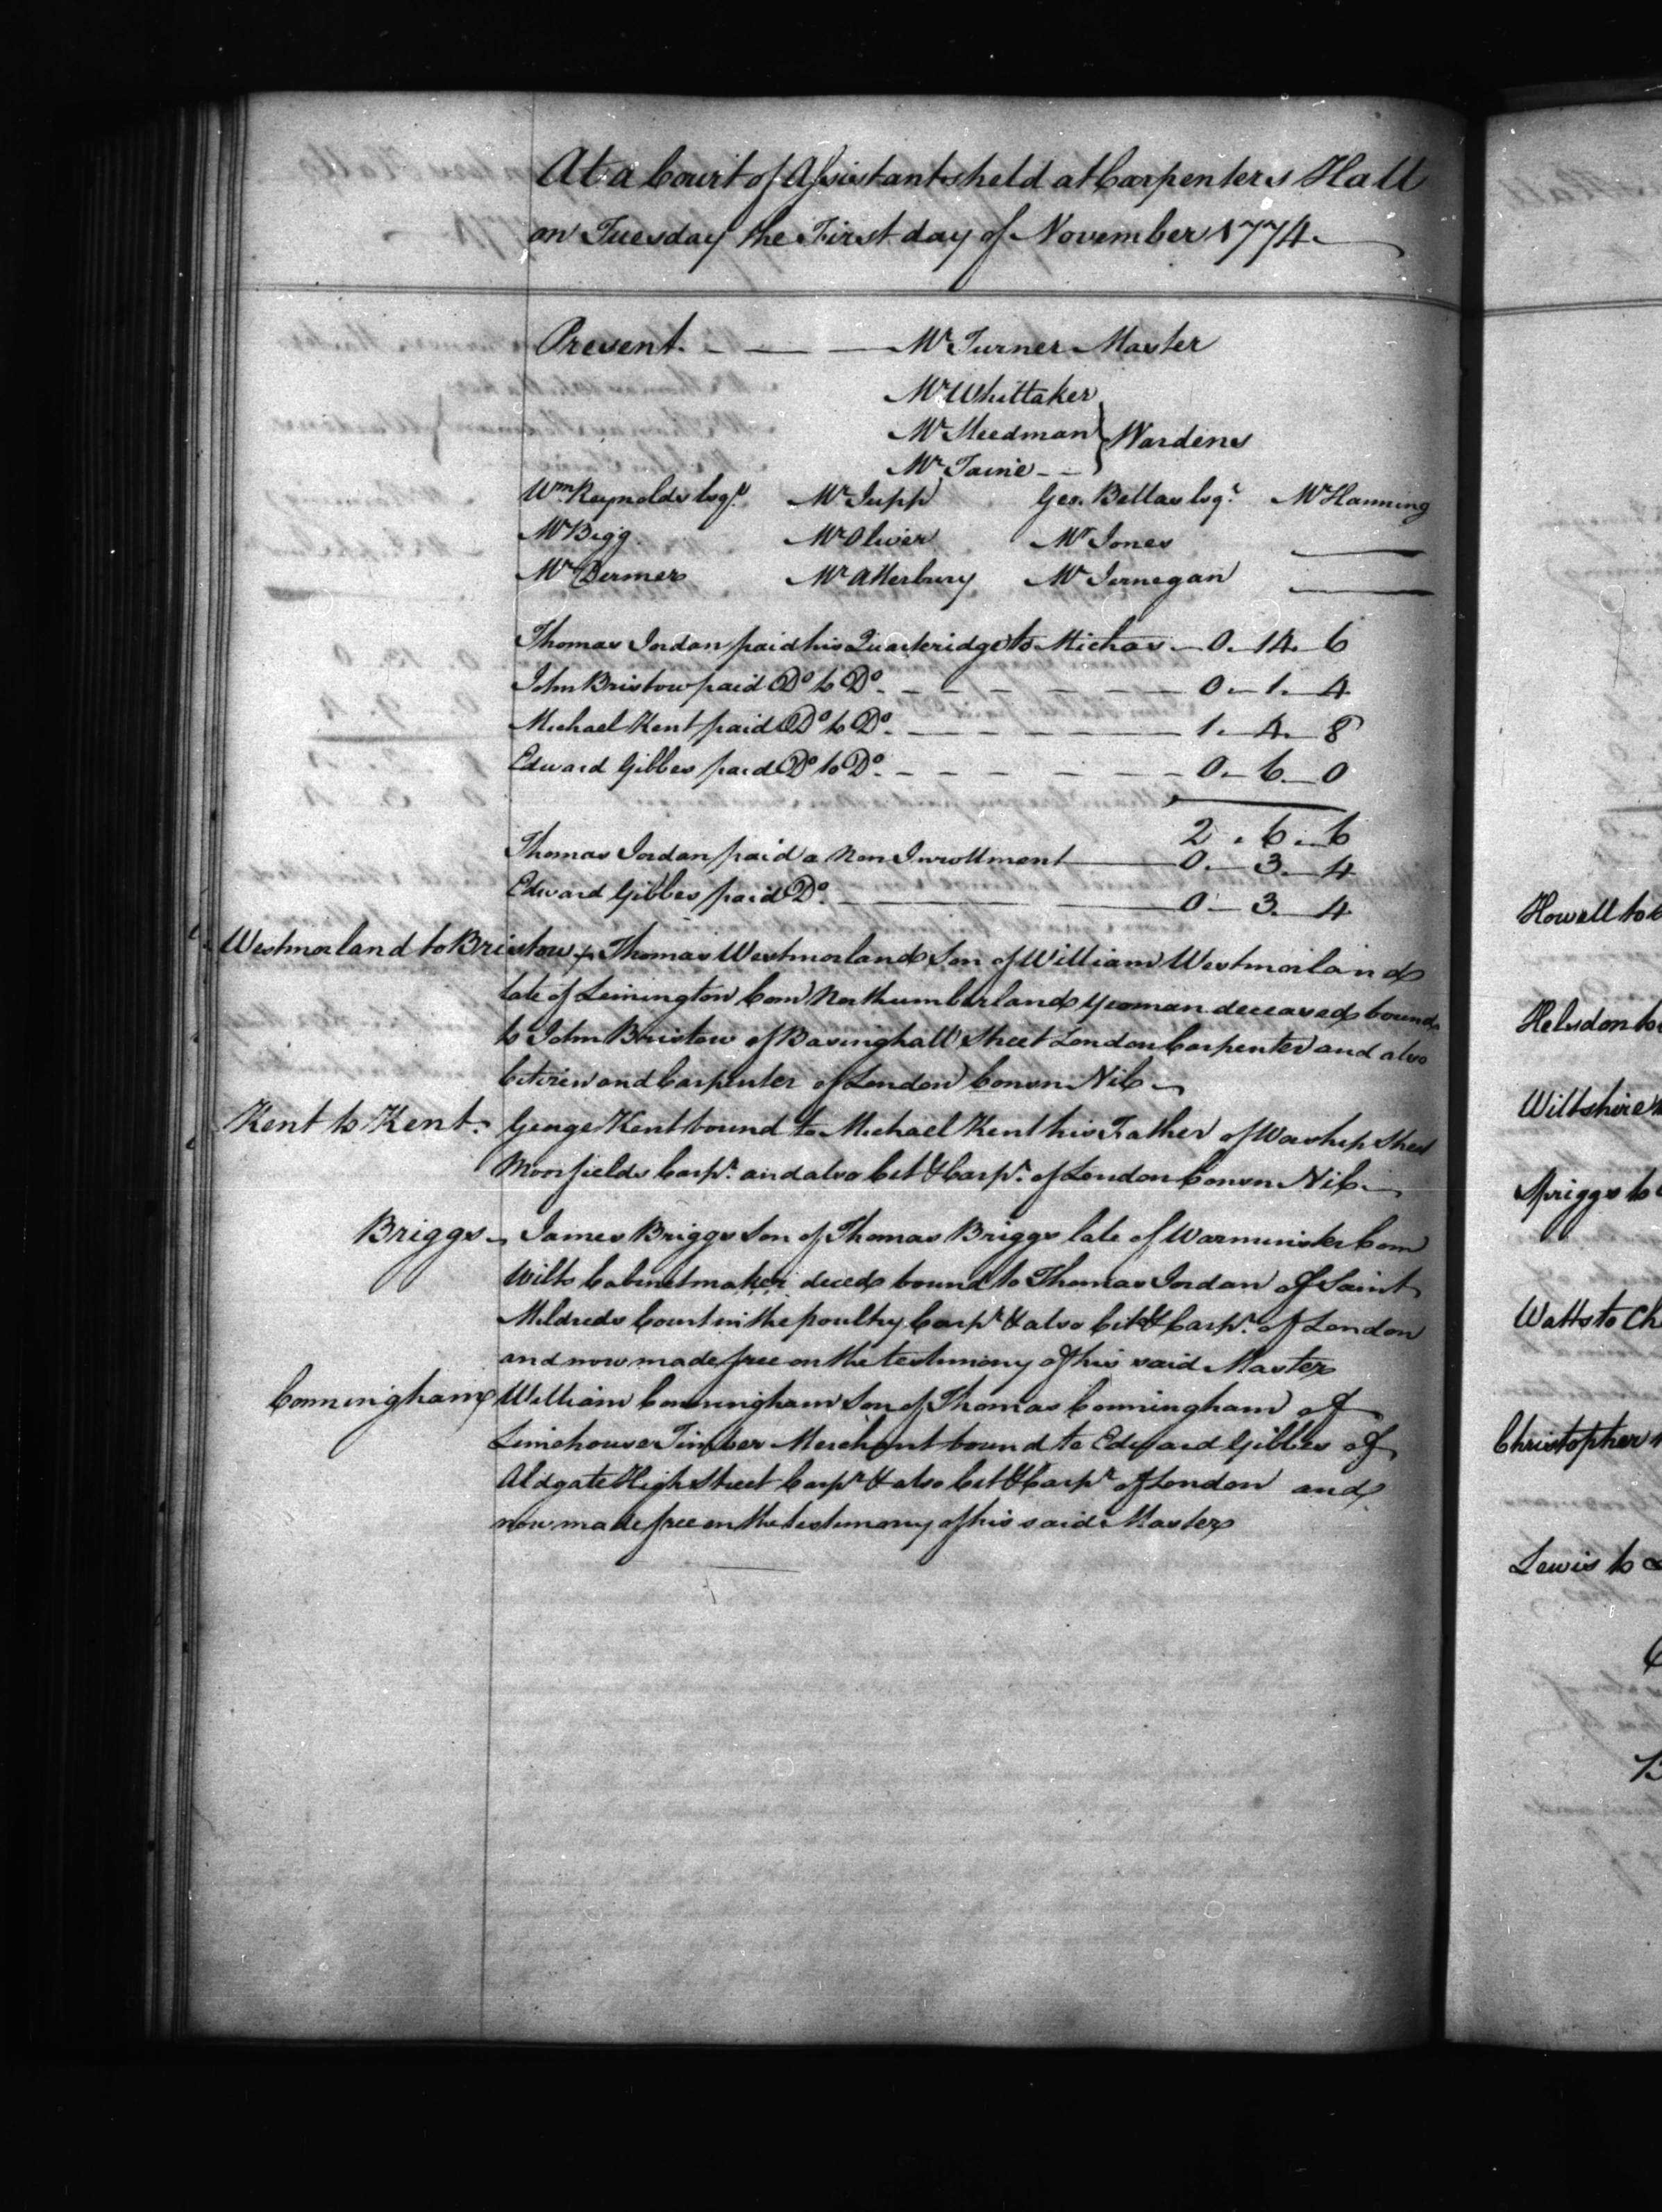 At a Court of Assistants held at Carpenters Hall
on Tuesday the First day of November 1774
Present. Mr Turner Master
Mr Whittaker
Mr Steedman } Wardens
Mr Taine
Wm Reynolds Esqr. Mr Jupp Geo. Bellas Esqr. Mr Hanning
Mr Bigg Mr Oliver Mr Jones
Mr Dermer Mr Atterbury Mr Jernegan
Thomas Jordan paid his Quarteridge to Michas 0. 14. 6
John Bristow paid Do to Do. 0. 1. 4
Michael Kent paid Do to Do. 1. 4. 8
Edward Gibbes paid Do to Do. 0. 6. 0
2. 6. 6
Thomas Jordan paid a Non Inrollment 0. 3. 4
Edward Gibbes paid Do. 0. 3. 4
Westmorland to Bristow Thomas Westmorland Son of William Westmorland
late of Northumberland Yeoman deceased bound
to John Bristow of Basinghall Street London Carpenter and also
Citizen and Carpenter of London Conson Nil
Kent to Kent. George Kent bound to Michael Kent his Father of Worship Street
Moorfields Carpr. and also Cit & Carpr. of London Conson Nil
Briggs James Briggs Son of Thomas Briggs late of Warminster Com
Wilts Cabinetmaker deced bound to Thomas Jordan of Saint
Mildreds Court in the poultry Carpr & also Cit & Carpr. of London
and now made free on the testimony of his said Master
Conningham William Conningham Son of Thomas Conningham of
Limehouse Timber Merchant bound to Edward Gibbes of
Aldgate High Street Carpr & also Cit & Carpr of London and
now made free on the testimony of his said Master
Howell to
Helsdon to
Wiltshire
Spriggs to
Watts to Ch
Christopher
Lewis to